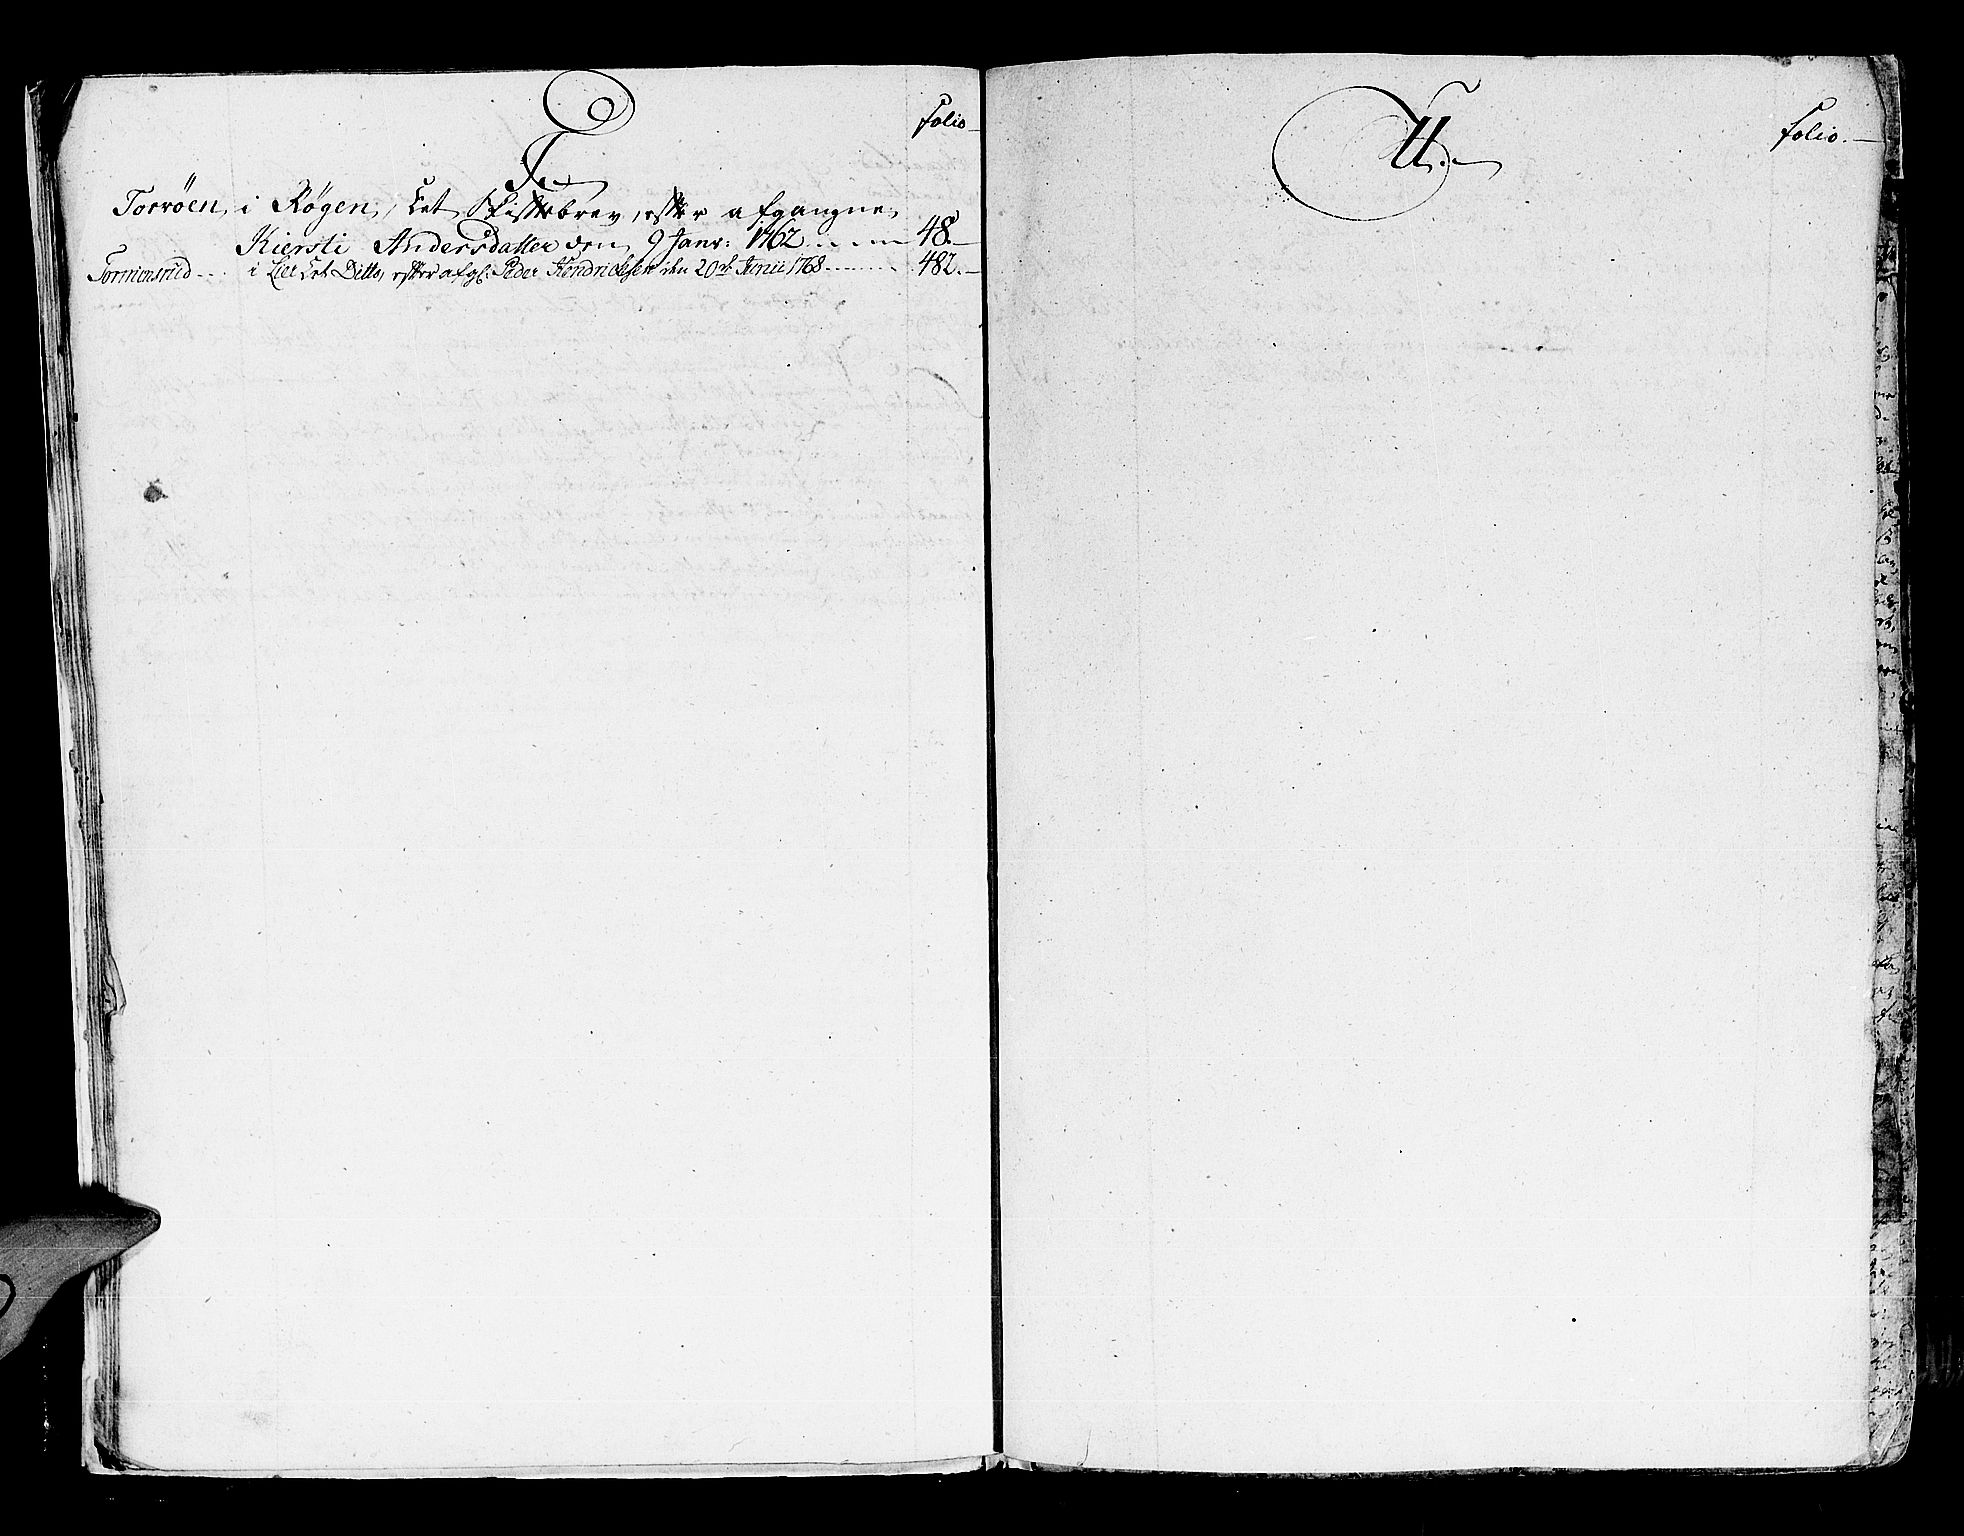 T.
folio
Torröen i Røgen, et Skiftebrev, efter afgangne
Kiersti Andersdatter den 9 Janv: 1762 48.
Tormonsrud i Lier et Ditto, efter afg: Peder Hendrichsen den 20de Junii 1768 482.
U.
folio.